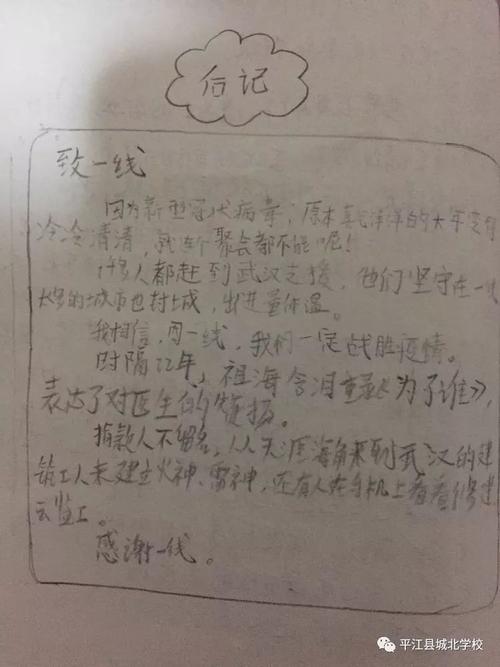 后记
致一线
因为新型冠状病毒，原本喜气洋洋的大年变得
冷冷清清，就连个聚会都不能呢！
许多人都赶到武汉支援，他们坚守在一线
大多的城市也封城，出进量体温。
我相信，同一线，我们一定战胜疫情。
时隔22年，祖海含泪重录《为了谁》，
表达了对医生的赞扬。
捐款人不留名，人从天涯海角来到武汉的建
筑工人来建立火神、雷神，还有人在手机上看着修建
云监工。
感谢一线。
平江县城北学校